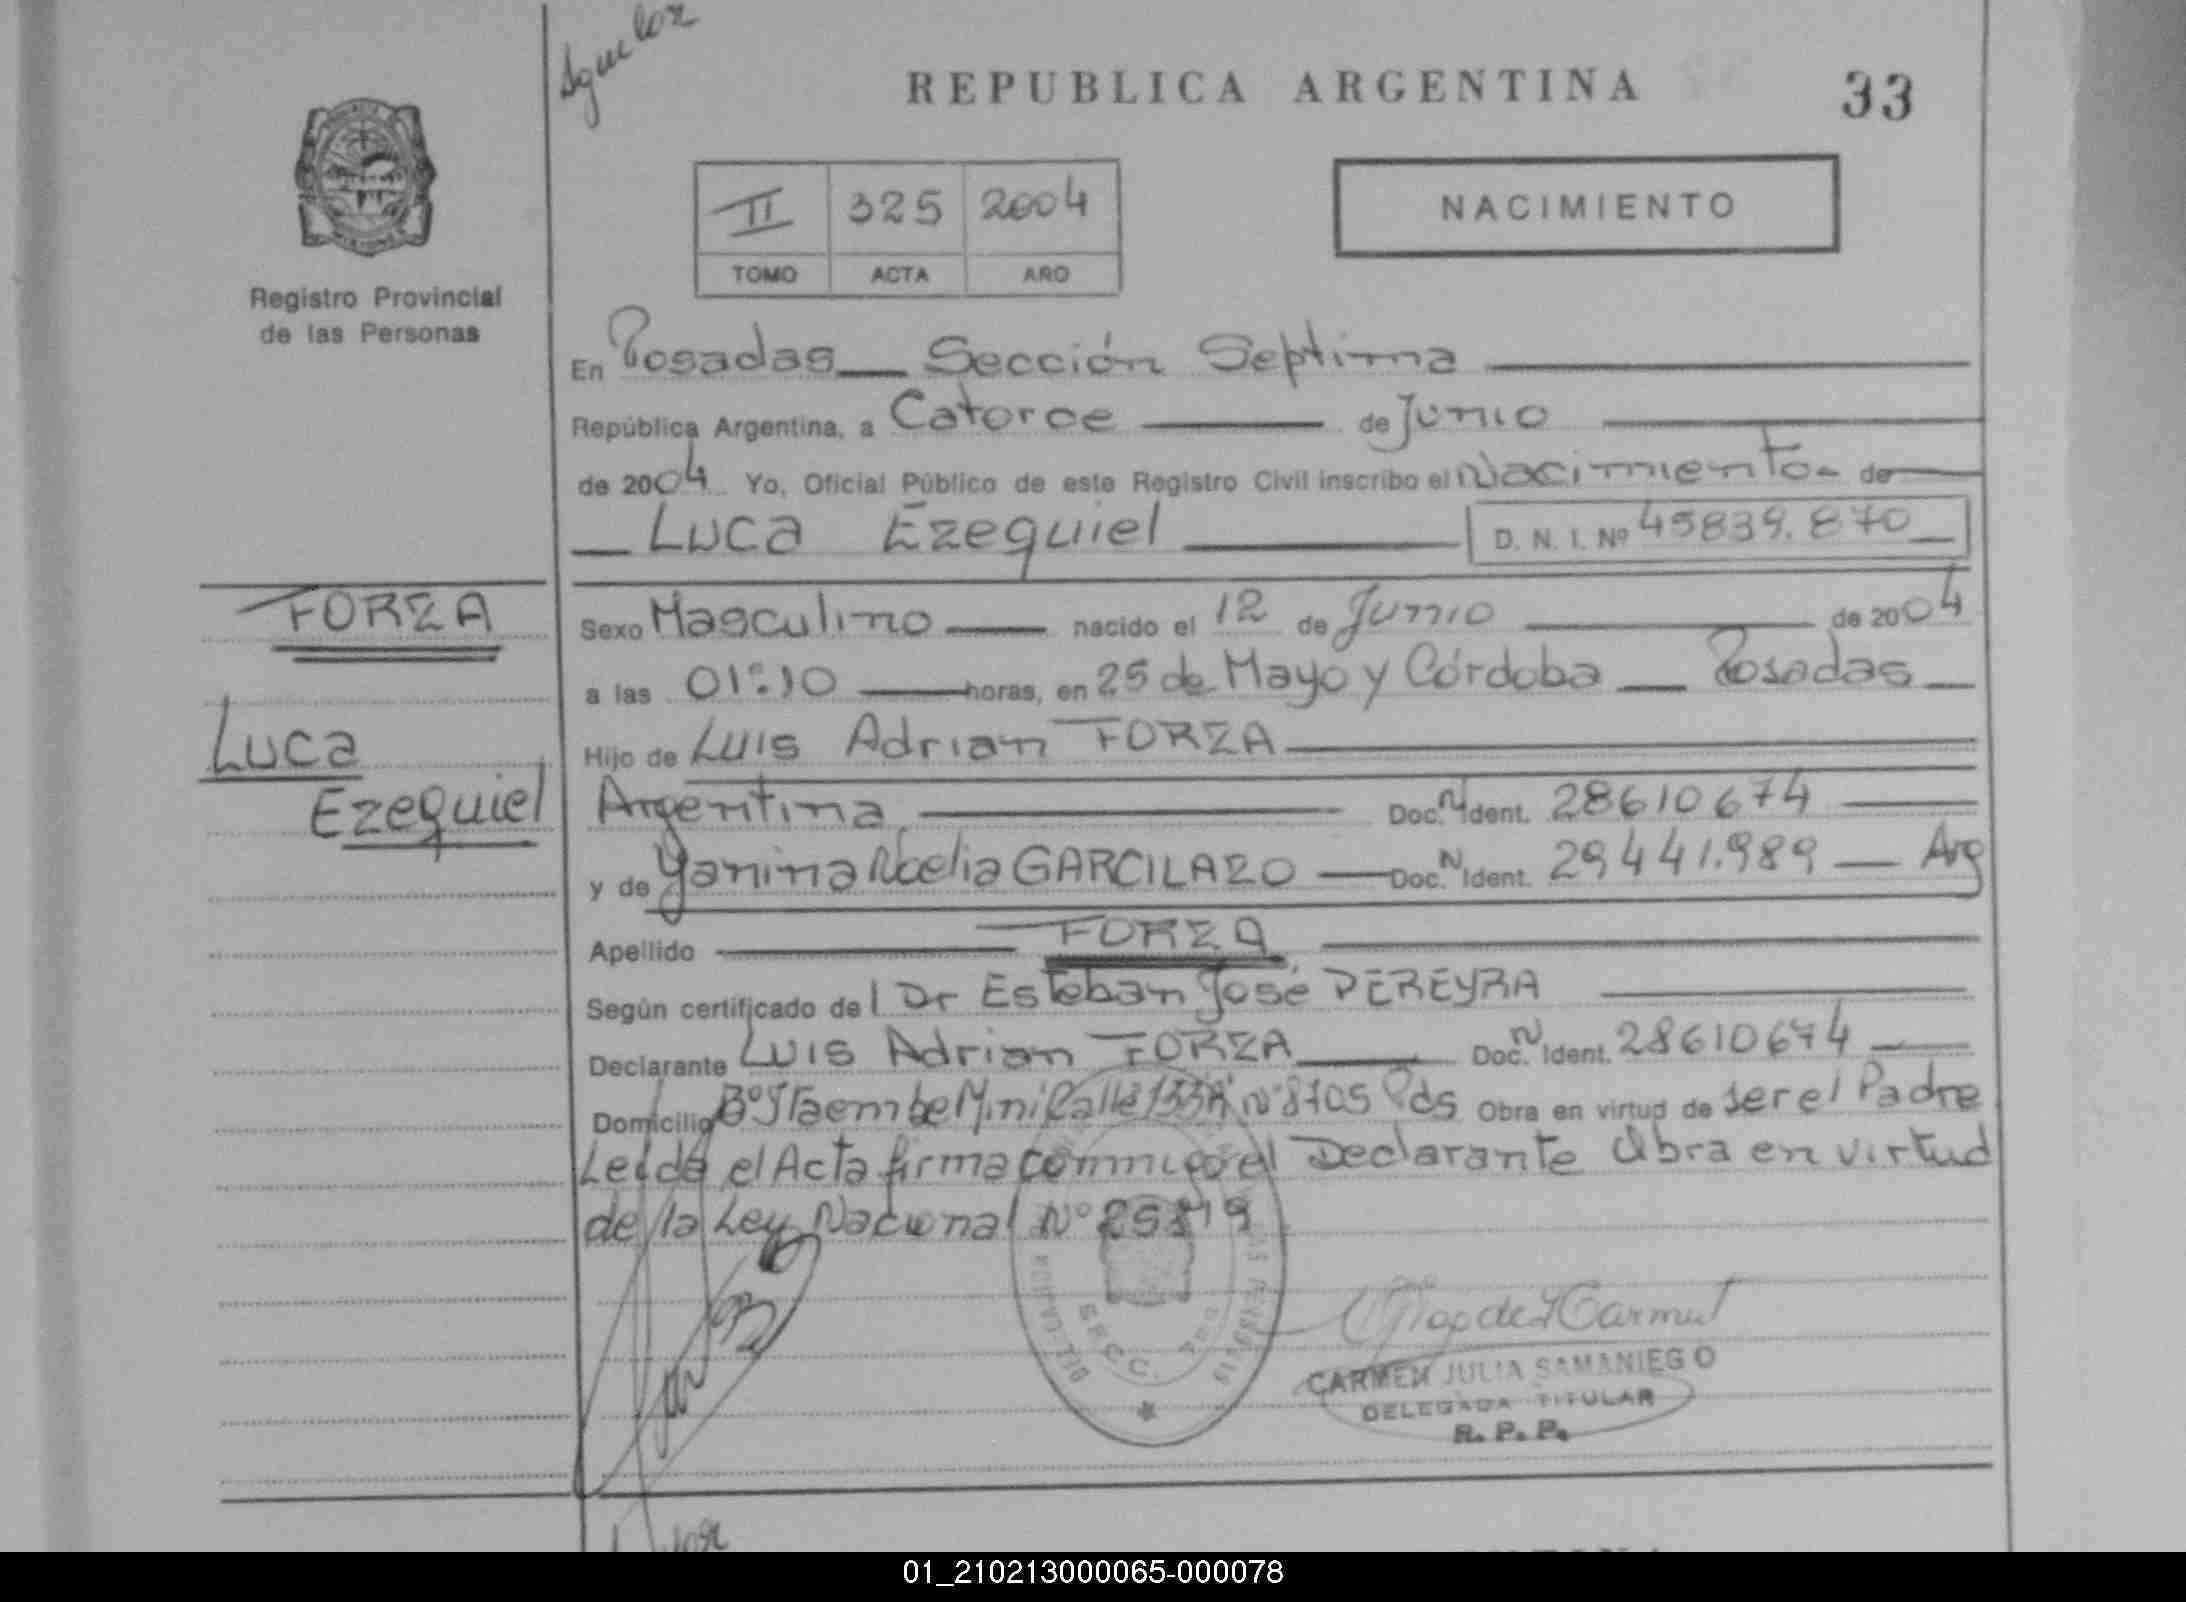 REPUBLICA ARGENTINA 33
II 325 2004
TOMO ACTA AÑO
NACIMIENTO
Registro Provincial
de las Personas
En Posadas Sección Septima
República Argentina, a Catorce de Junio
de 2004 Yo, Oficial Público de este Registro Civil inscribo el Nacimiento de
Luca Ezequiel D. N. I. Nº 45839.870
FORZA
Luca
Ezequiel
Sexo Masculino nacido el 12 de Junio de 2004
a las 01:10 horas, en 25 de Mayo y Córdoba Posadas
Hijo de Luis Adrian FORZA
Argentina Doc. N Ident. 28610674
y de Yanina Noelia GARCILAZO Doc. N Ident. 29441.989 Arg
Apellido FORZA
Según certificado del Dr Esteban José PEREYRA
Declarante Luis Adrian FORZA Doc. N Ident. 28610674
Domicilio Bº Itaembe Mini Calle Nº 8705 Pds Obra en virtud de ser el Padre
Leida el Acta firma conmigo el Declarante Obra en virtud
de la Ley Nacional Nº
SECC. 7ma
CARMEN JULIA SAMANIEGO
DELEGADA TITULAR
R. P. P.
01_210213000065-000078